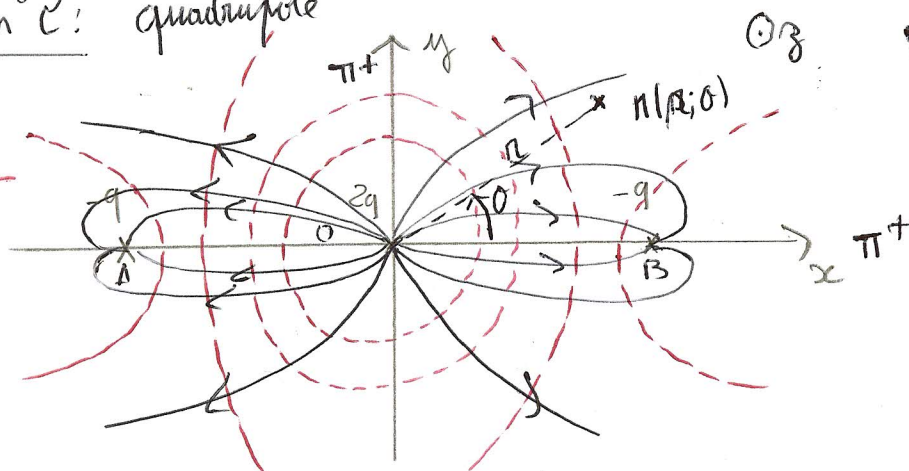 n° C: quadrupole
⊙z
y
π+
M(r;θ)
r
-q
2q
θ
-q
O
A
B
x
π+